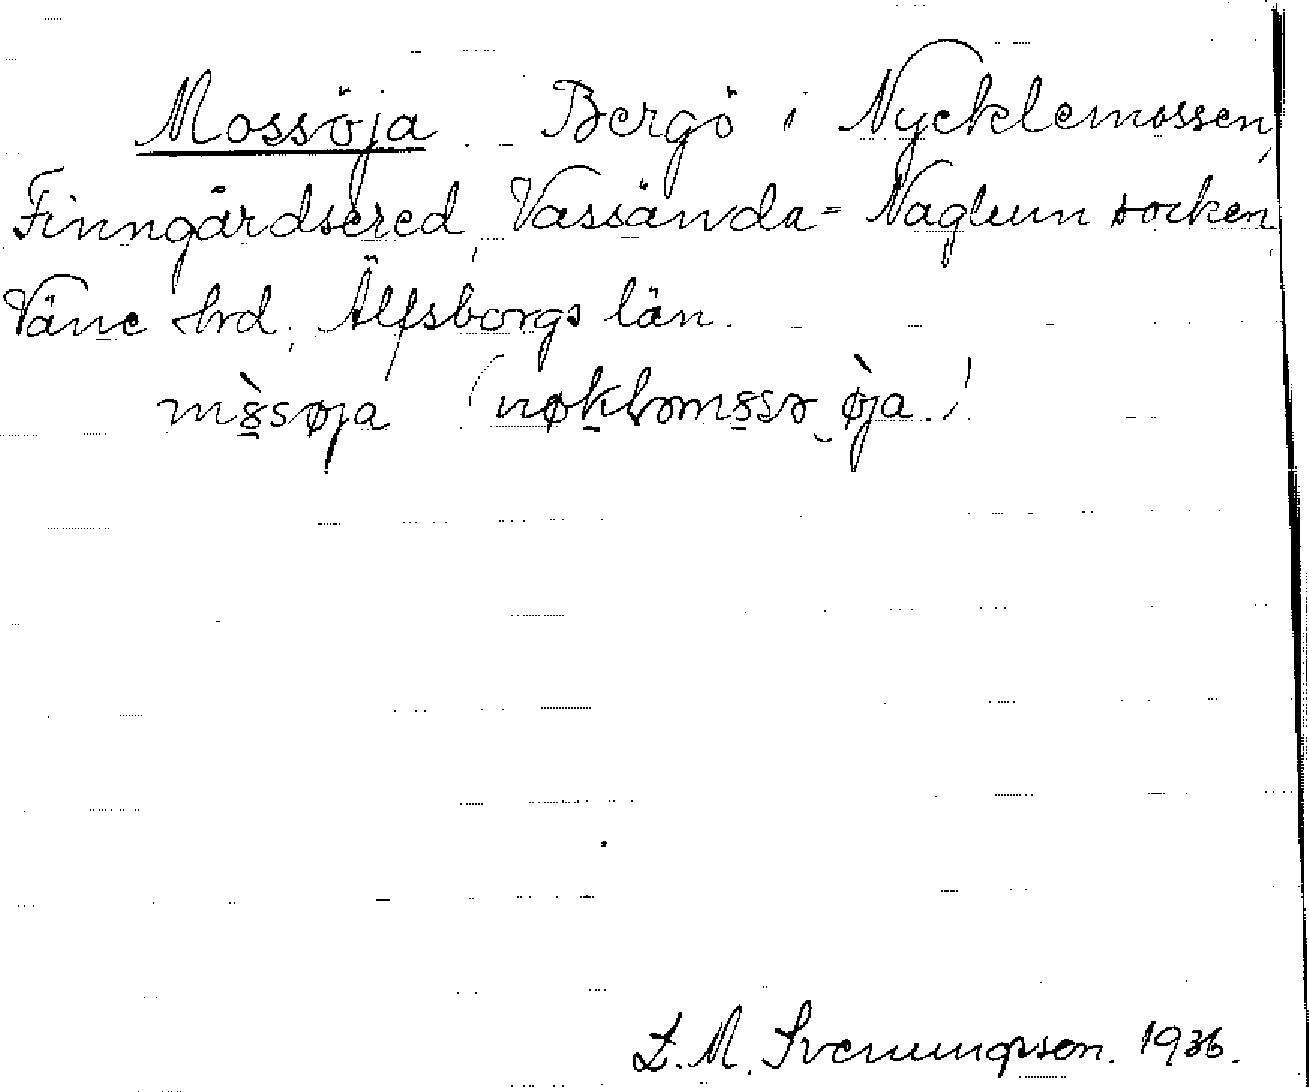 Mossöja Bergö i Nycklemossen,
Finngårdsered, Vassända-Naglum socken,
Väne hrd, Älfsborgs län.
S. M. Svenungsson. 1936.